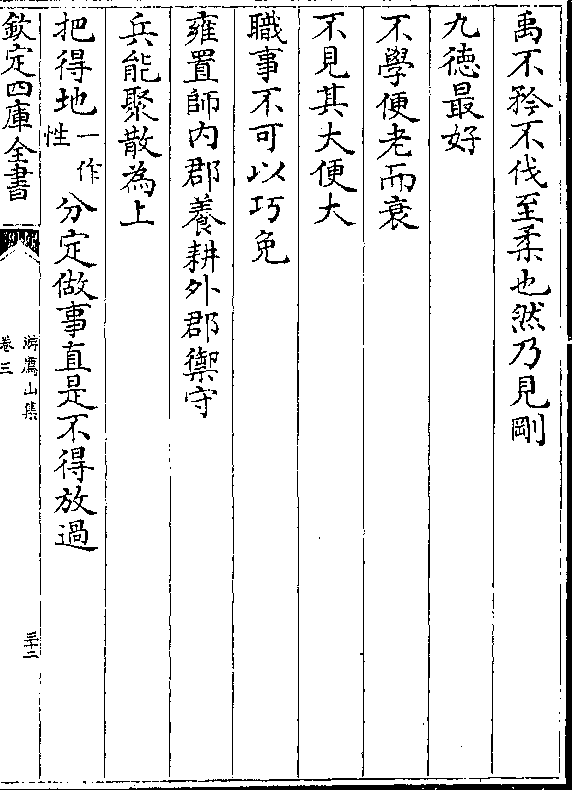 禹不矜不伐至柔也然乃見剛
九德最好
不學便老而衰
不見其大便大
職事不可以巧免
雍置師内郡養耕外郡禦守
兵能聚散為上
把得地一作性分定做事直是不得放過
欽定四庫全書
游廌山集
卷三
三十二